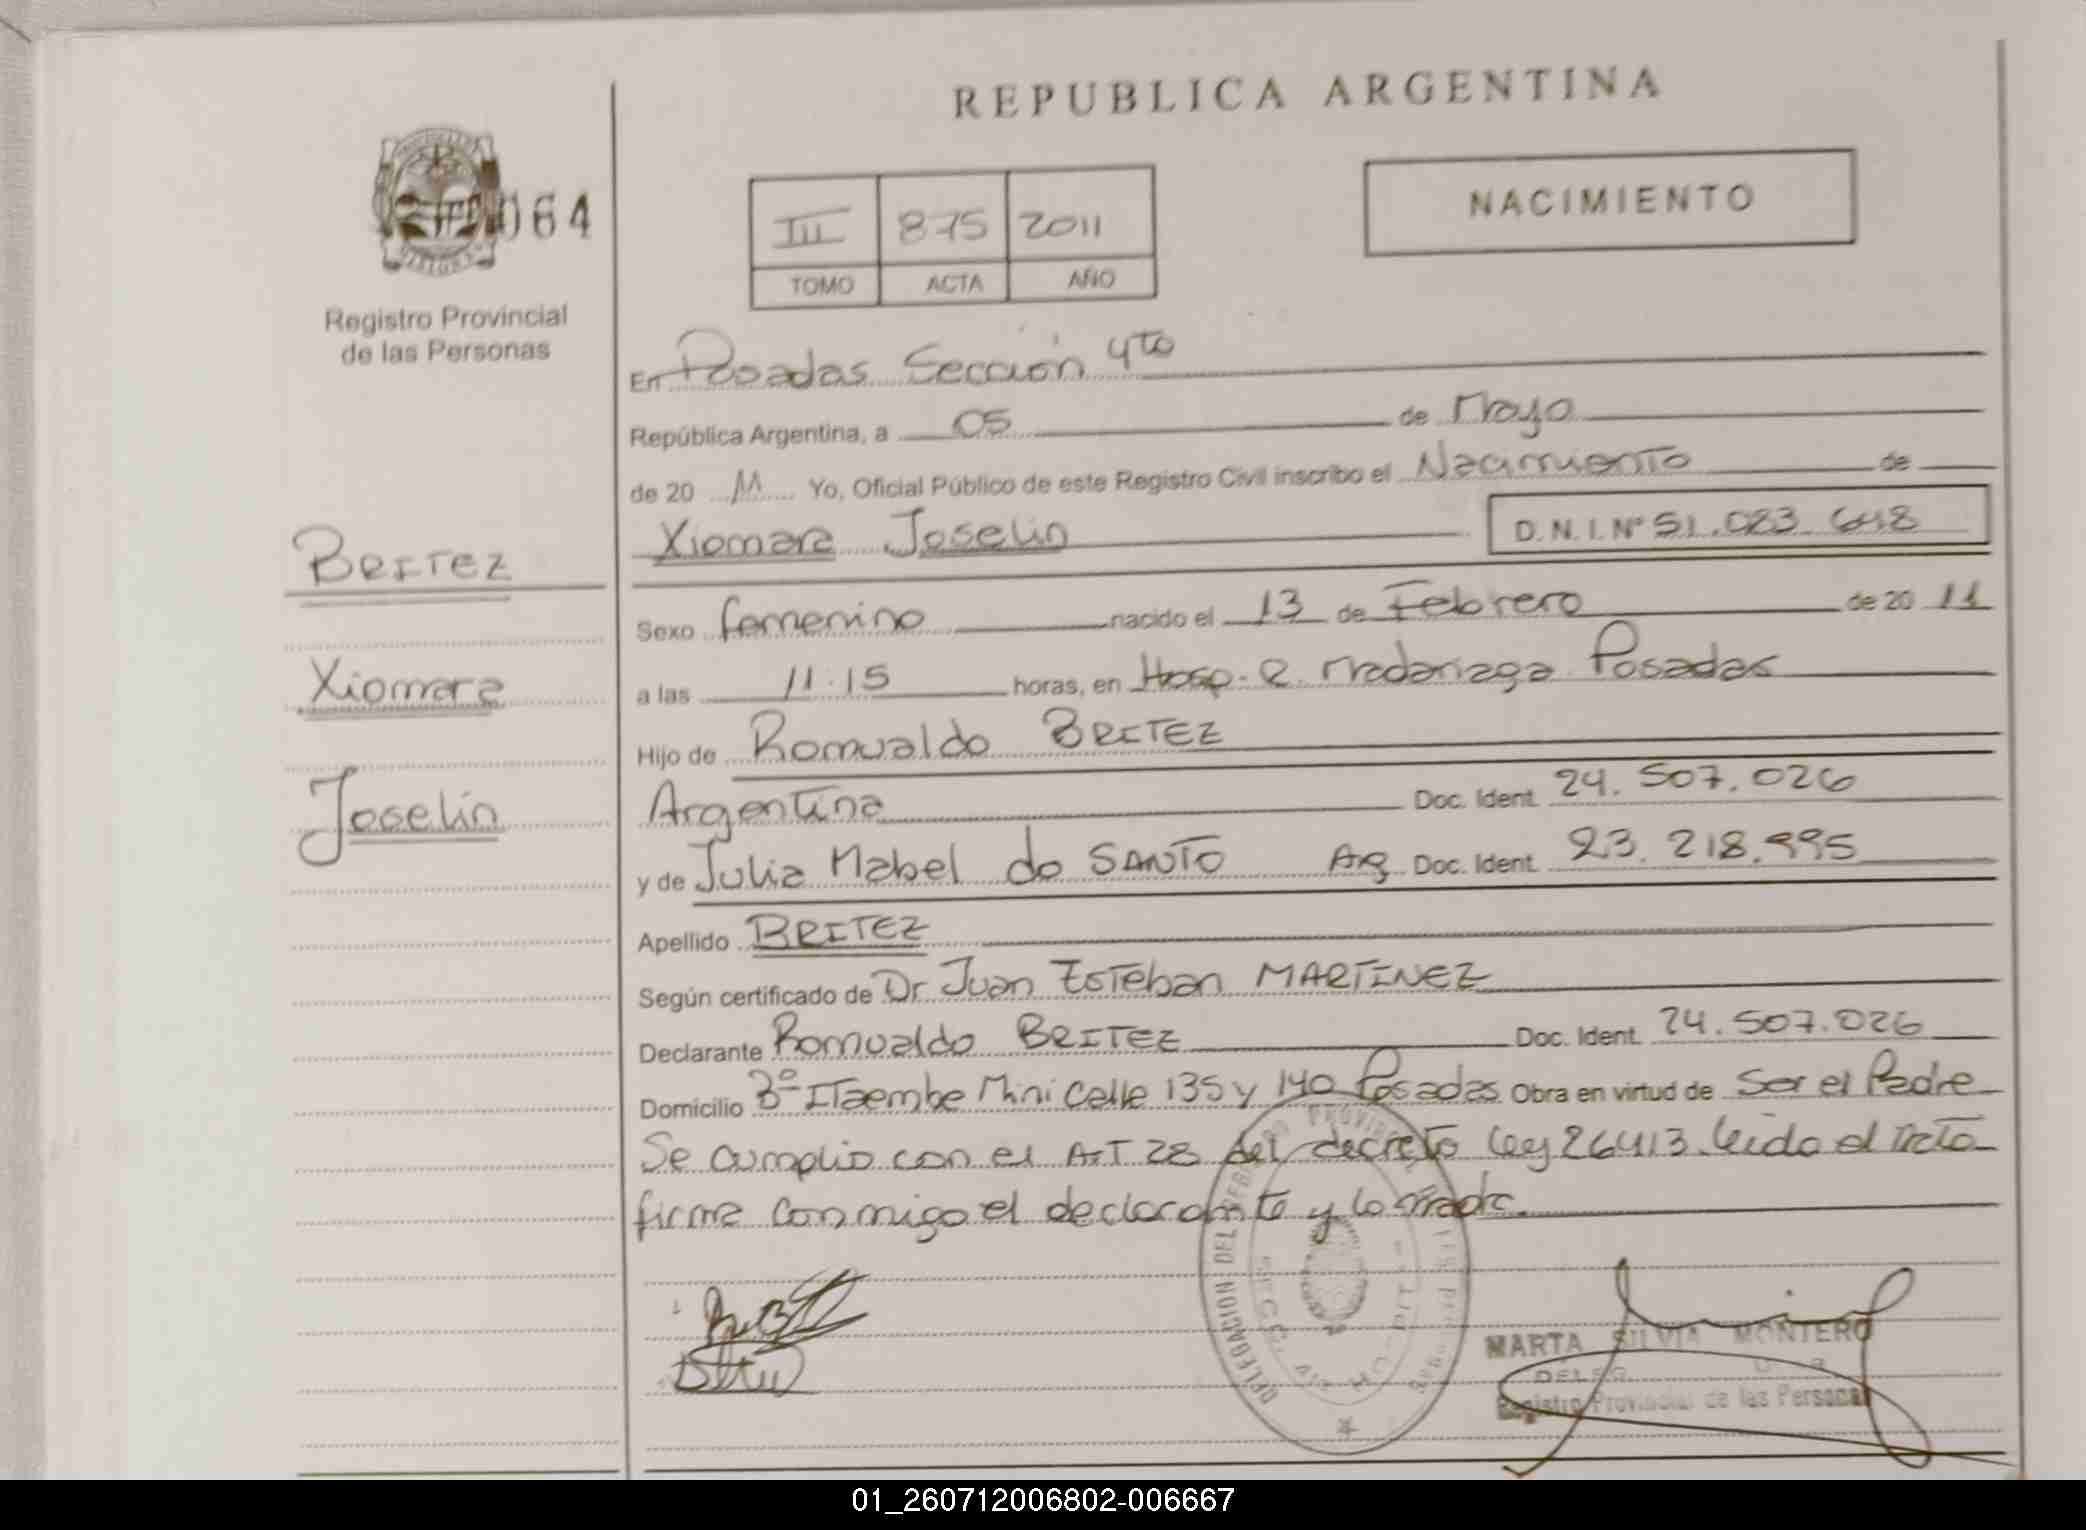 REPUBLICA ARGENTINA
064
Registro Provincial
de las Personas
III 875 2011
TOMO ACTA AÑO
NACIMIENTO
En Posadas Sección 4to
República Argentina, a 05 de Mayo
de 20 11 Yo, Oficial Público de este Registro Civil inscribo el Nacimiento de
Xiomara Joselin D.N.I.Nº 51.083.648
BRITEZ
Xiomara
Joselin
Sexo femenino nacido el 13 de Febrero de 20 11
a las 11.15 horas, en Hosp. R. Madariaga Posadas
Hijo de Romualdo BRITEZ
Argentina Doc. Ident. 24.507.026
y de Julia Mabel do SANTO Arg Doc. Ident. 23.218.995
Apellido BRITEZ
Según certificado de Dr Juan Esteban MARTINEZ
Declarante Romualdo BRITEZ Doc. Ident. 24.507.026
Domicilio Bº Itaembe Mini Calle 135 y 140 Posadas Obra en virtud de Ser el Padre
Se cumplio con el Art 28 del decreto ley 26413. Leida el Acta
firma conmigo el declarante y la madre.
DELEGACION DEL REGISTRO PROVINCIAL
MARTA SILVIA MONTERO
Registro Provincial de las Personas
01_260712006802-006667